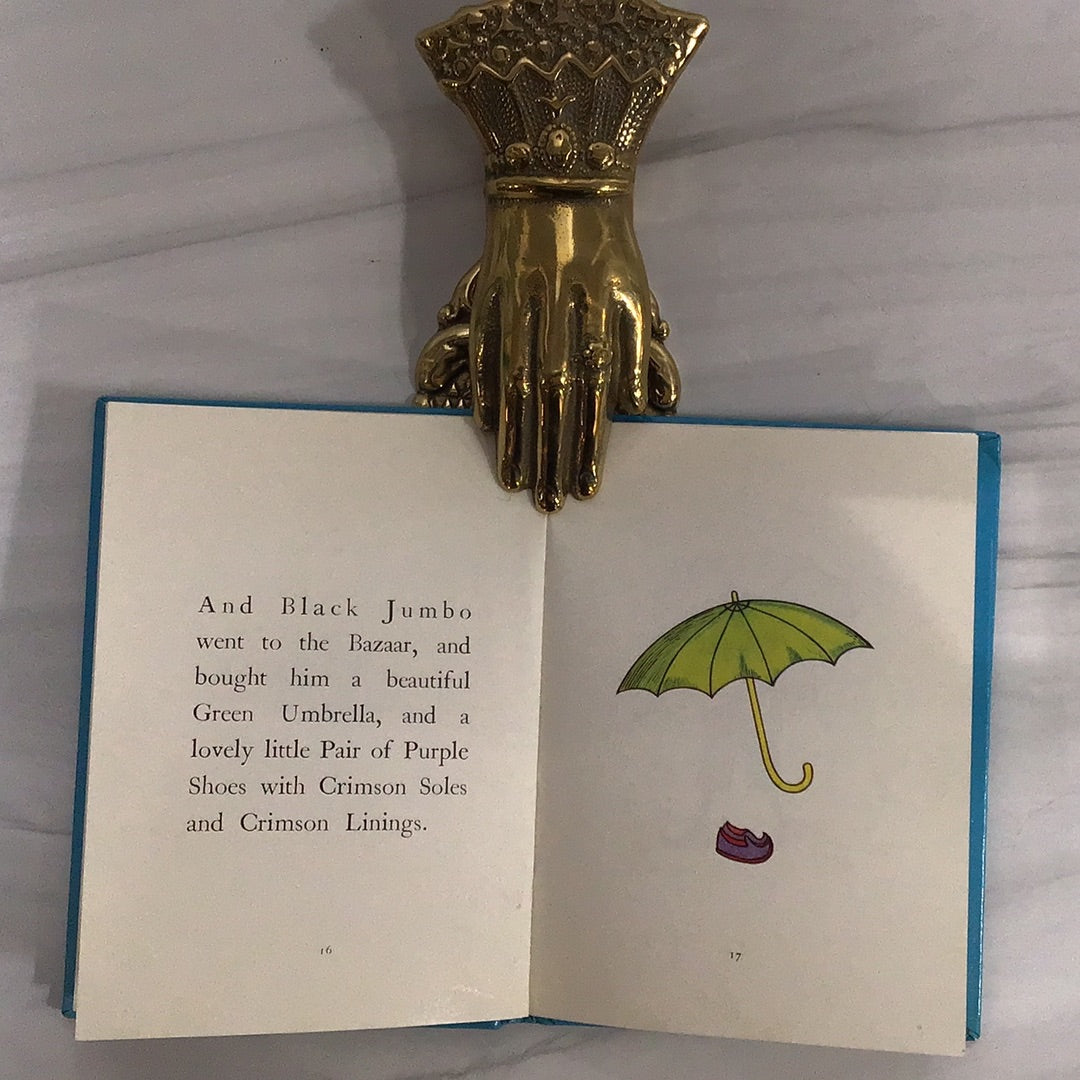 And Black Jumbo
went to the Bazaar, and
bought him a beautiful
Green Umbrella, and a
lovely little Pair of Purple
Shoes with Crimson Soles
and Crimson Linings.
16
17